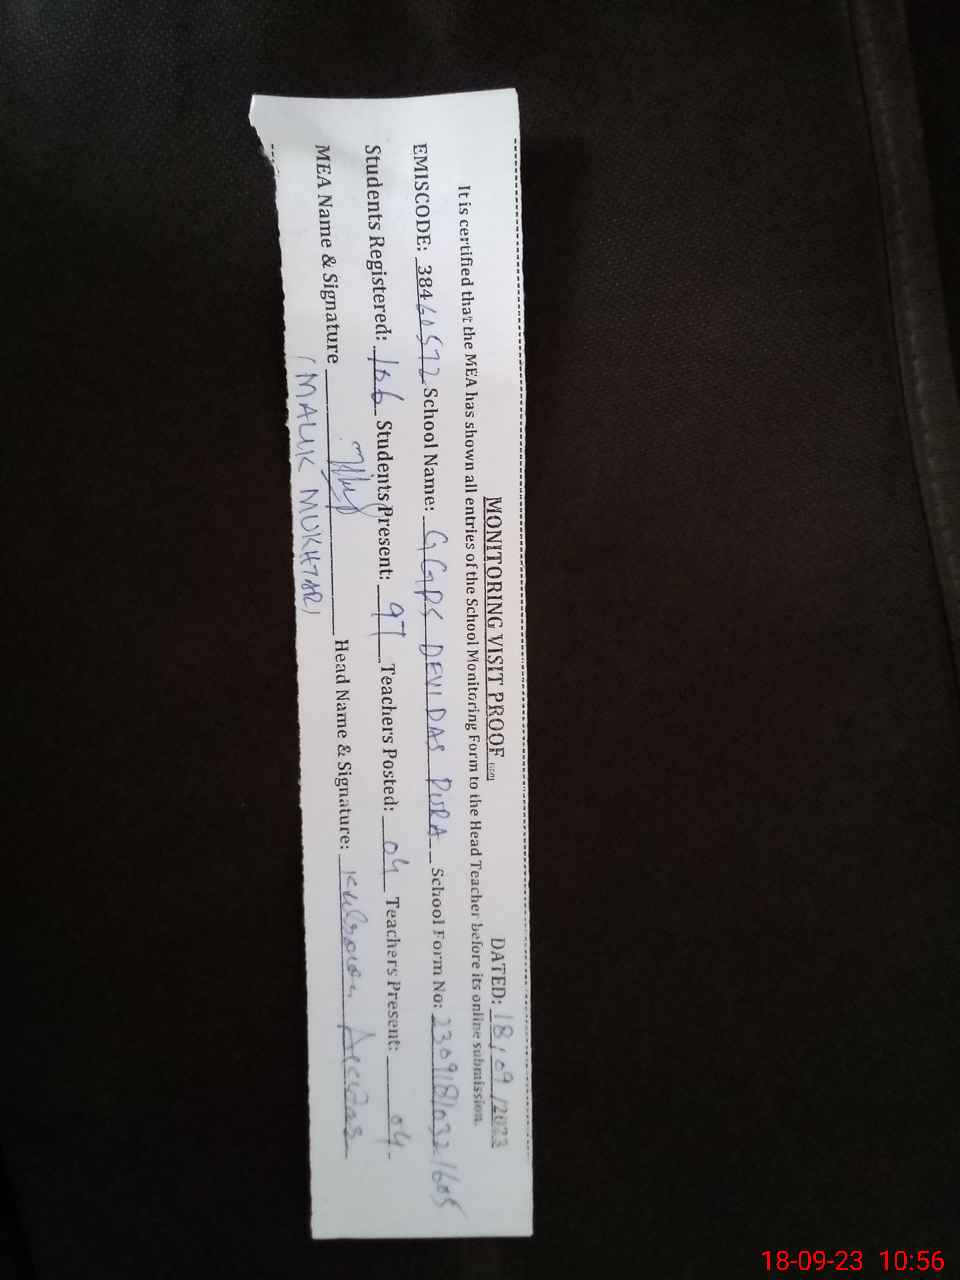 MONITORING VISIT PROOF DATED: 18/09/2023
It is certified that the MEA has shown all entries of the School Monitoring Form to the Head Teacher before its online submission.
EMISCODE: 38460572 School Name: GGPS DEVI DAS PURA School Form No: 230918103221605
Students Registered: 106 Students Present: 97 Teachers Posted: 04 Teachers Present: 04
MEA Name & Signature Head Name & Signature: Kulsoom
(MALIK MUKHTAR)
18-09-23 10:56